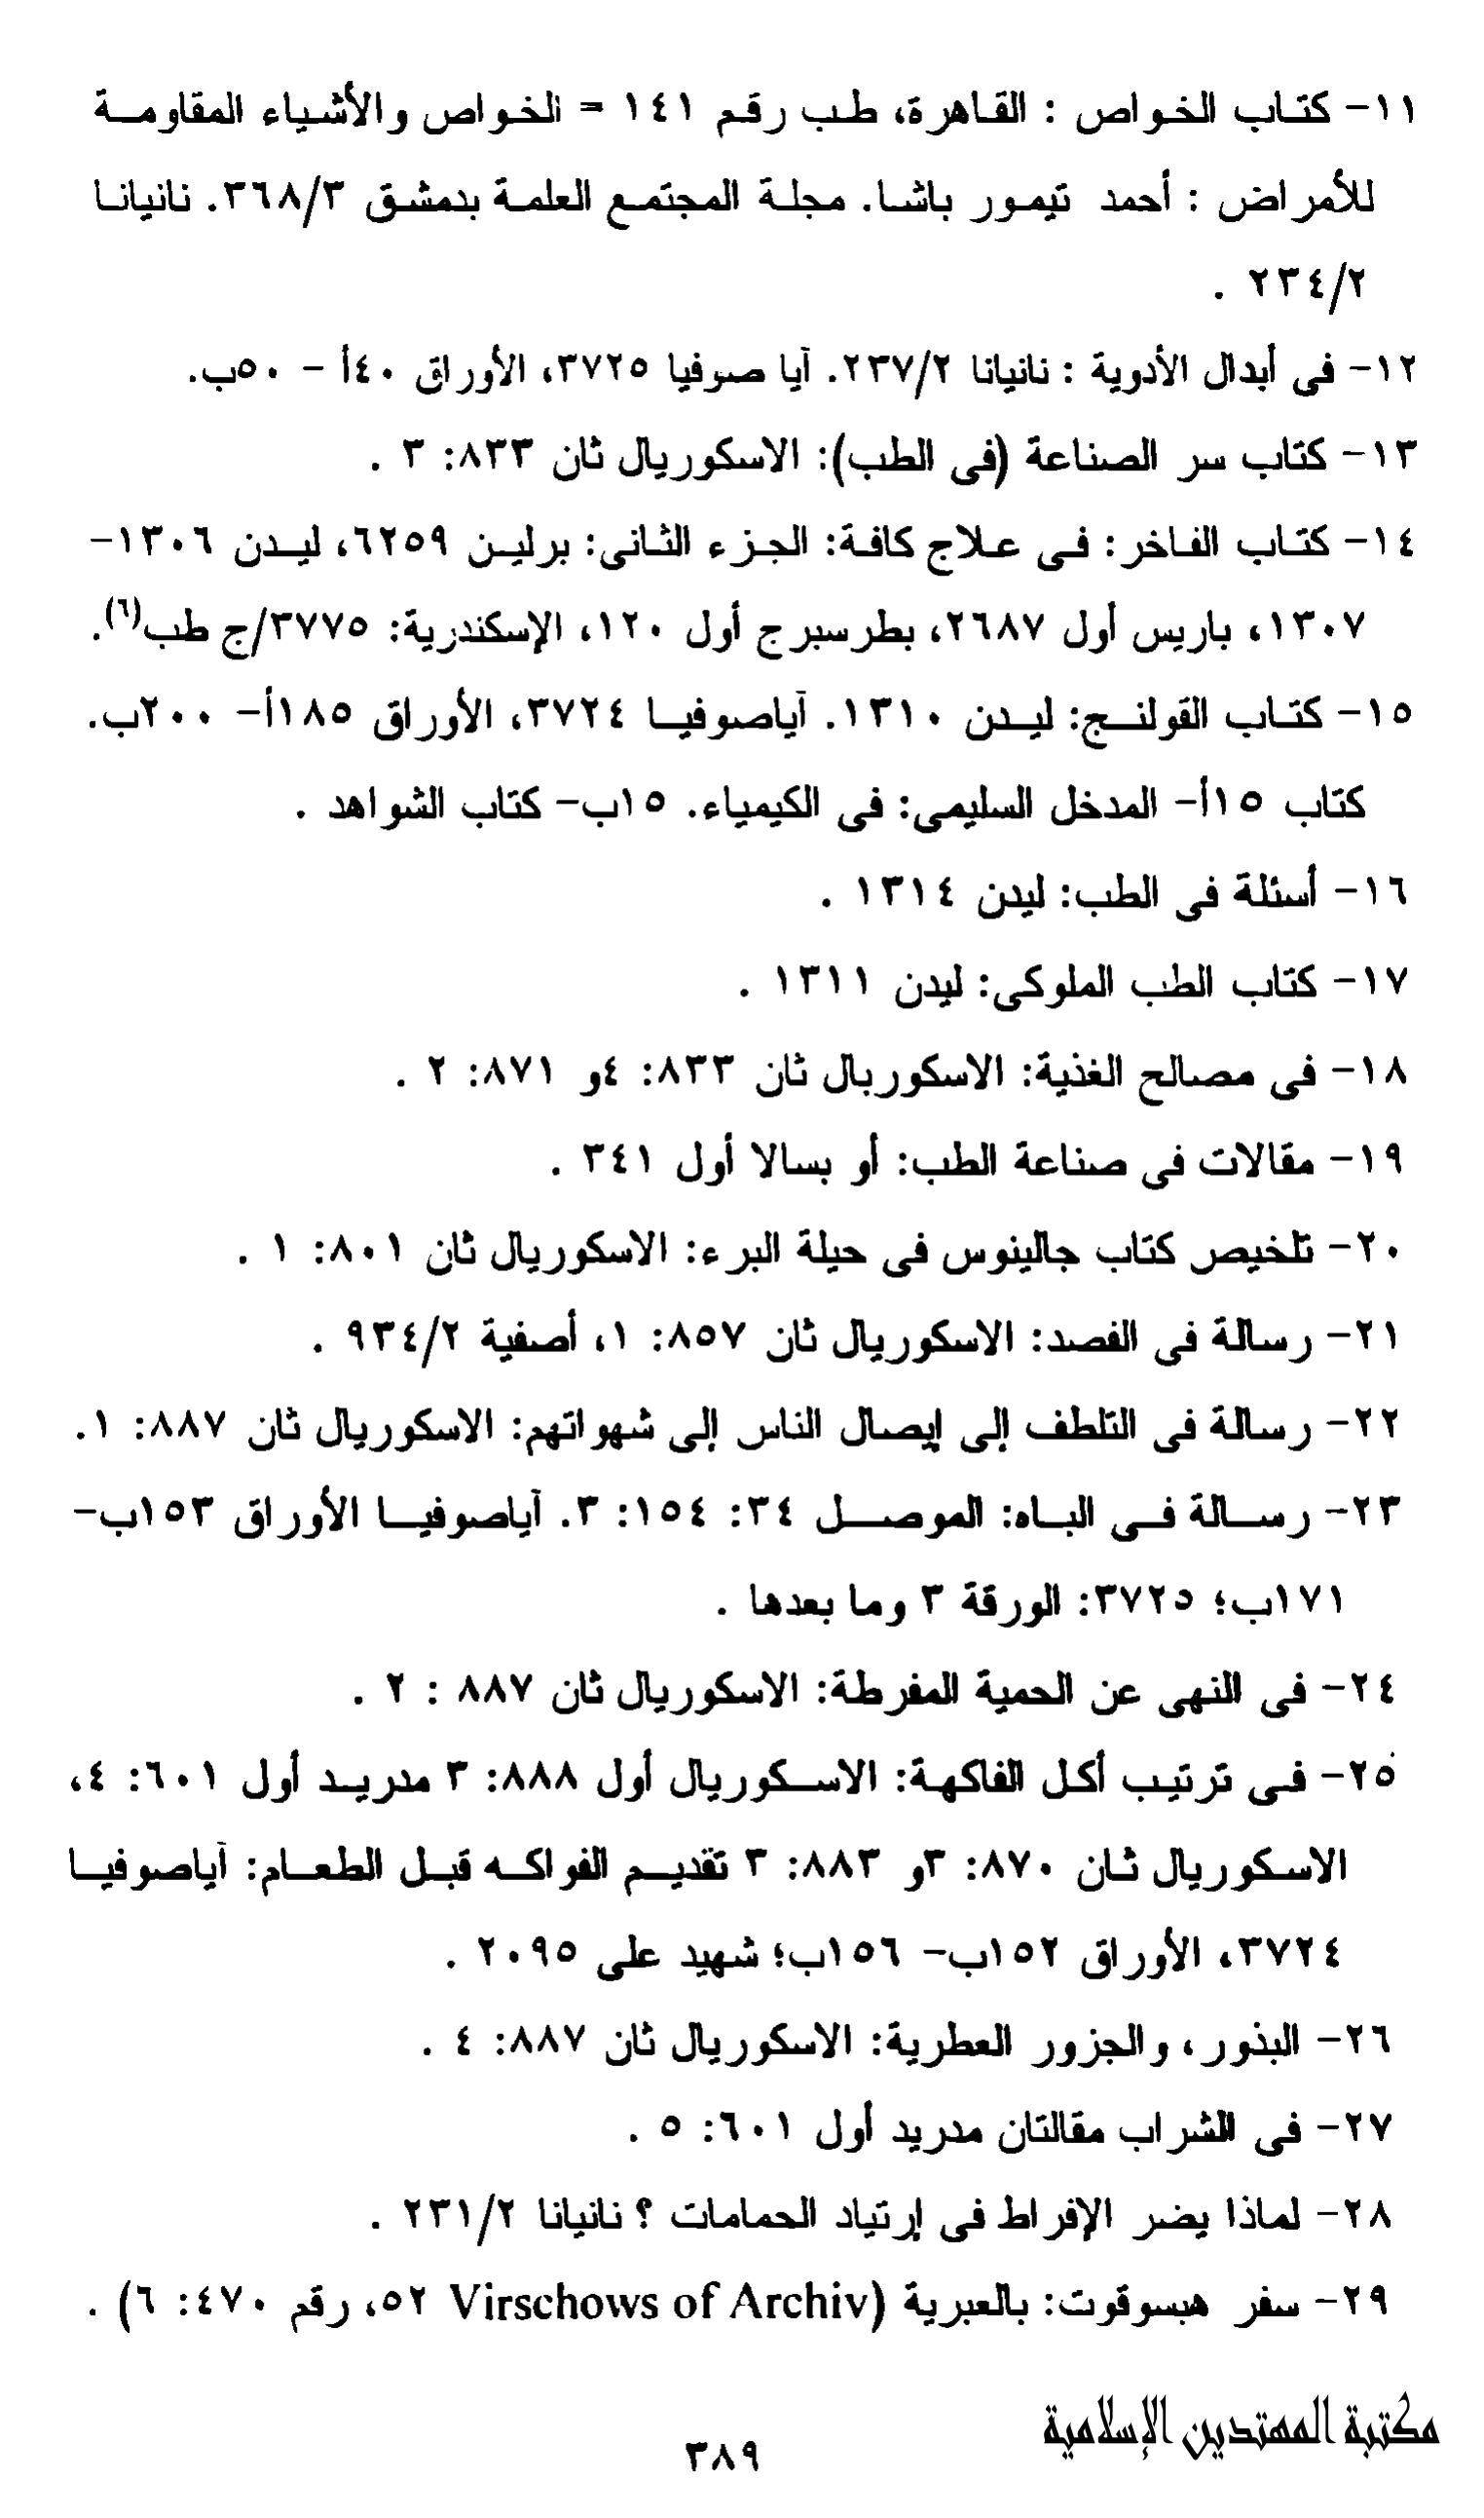 ١١- كتاب الخواص : القاهرة، طب رقم ١٤١ = الخواص والأشياء المقاومة
للأمراض : أحمد تيمور باشا. مجلة المجتمع العلمة بدمشق ٣٦٨/٣. نانيانا
٢٣٤/٢ .
١٢- فى أبدال الأدوية : نانيانا ٢٣٧/٢. آيا صوفيا ٣٧٢٥، الأوراق ٤٠أ - ٥٠ب.
١٣- كتاب سر الصناعة (فى الطب): الاسكوريال ثان ٨٣٣: ٣ .
١٤- كتاب الفاخر: فى علاج كافة: الجزء الثانى: برلين ٦٢٥٩، ليدن ١٣٠٦-
١٣٠٧، باريس أول ٢٦٨٧، بطرسبرج أول ١٢٠، الإسكندرية: ٣٧٧٥/ج طب(٦).
١٥- كتاب القولنج: ليدن ١٣١٠. آياصوفيا ٣٧٢٤، الأوراق ١٨٥أ- ٢٠٠ب.
كتاب ١٥أ- المدخل السليمى: فى الكيمياء. ١٥ب- كتاب الشواهد .
١٦- أسئلة فى الطب: ليدن ١٣١٤ .
١٧- كتاب الطب الملوكى: ليدن ١٣١١ .
١٨- فى مصالح الغذية: الاسكوربال ثان ٨٣٣: ٤و ٨٧١: ٢ .
١٩- مقالات فى صناعة الطب: أو بسالا أول ٣٤١ .
٢٠- تلخيص كتاب جالينوس فى حيلة البرء: الاسكوريال ثان ٨٠١: ١ .
٢١- رسالة فى الفصد: الاسكوريال ثان ٨٥٧: ١، أصفية ٩٣٤/٢ .
٢٢- رسالة فى التلطف إلى إيصال الناس إلى شهواتهم: الاسكوريال ثان ٨٨٧: ١.
٢٣- رسالة فى الباه: الموصل ٣٤: ١٥٤: ٣. آياصوفيا الأوراق ١٥٣ب-
١٧١ب؛ ٣٧٢٥: الورقة ٣ وما بعدها .
٢٤- فى النهى عن الحمية المفرطة: الاسكوريال ثان ٨٨٧ : ٢ .
٢٥- فى ترتيب أكل الفاكهة: الاسكوريال أول ٨٨٨: ٣ مدريد أول ٦٠١: ٤،
الاسكوريال ثان ٨٧٠: ٣و ٨٨٣: ٣ تقديم الفواكه قبل الطعام: آياصوفيا
٣٧٢٤، الأوراق ١٥٢ب- ١٥٦ب؛ شهيد على ٢٠٩٥ .
٢٦- البذور، والجزور العطرية: الاسكوريال ثان ٨٨٧: ٤ .
٢٧- فى الشراب مقالتان مدريد أول ٦٠١: ٥ .
٢٨- لماذا يضر الإفراط فى إرتياد الحمامات ؟ نانيانا ٢٣١/٢ .
٢٩- سفر هبسوقوت: بالعبرية (Virschows of Archiv ٥٢، رقم ٤٧٠: ٦) .
مكتبة المهتدين الإسلامية
٣٨٩